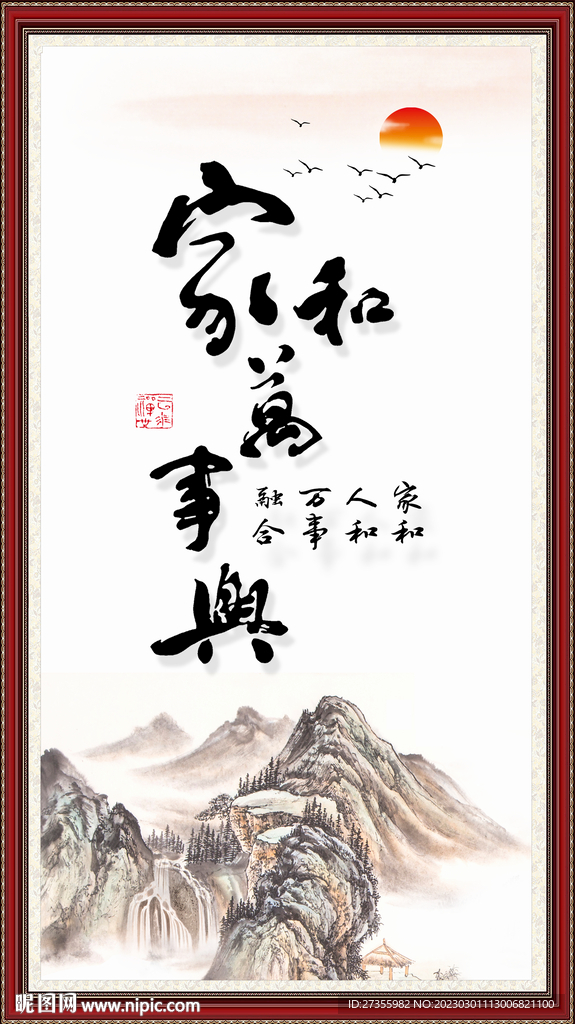 家和
萬
事
興
家和
人和
万事
融合
昵图网 www.nipic.com
ID:27355982 NO:20230301113006821100